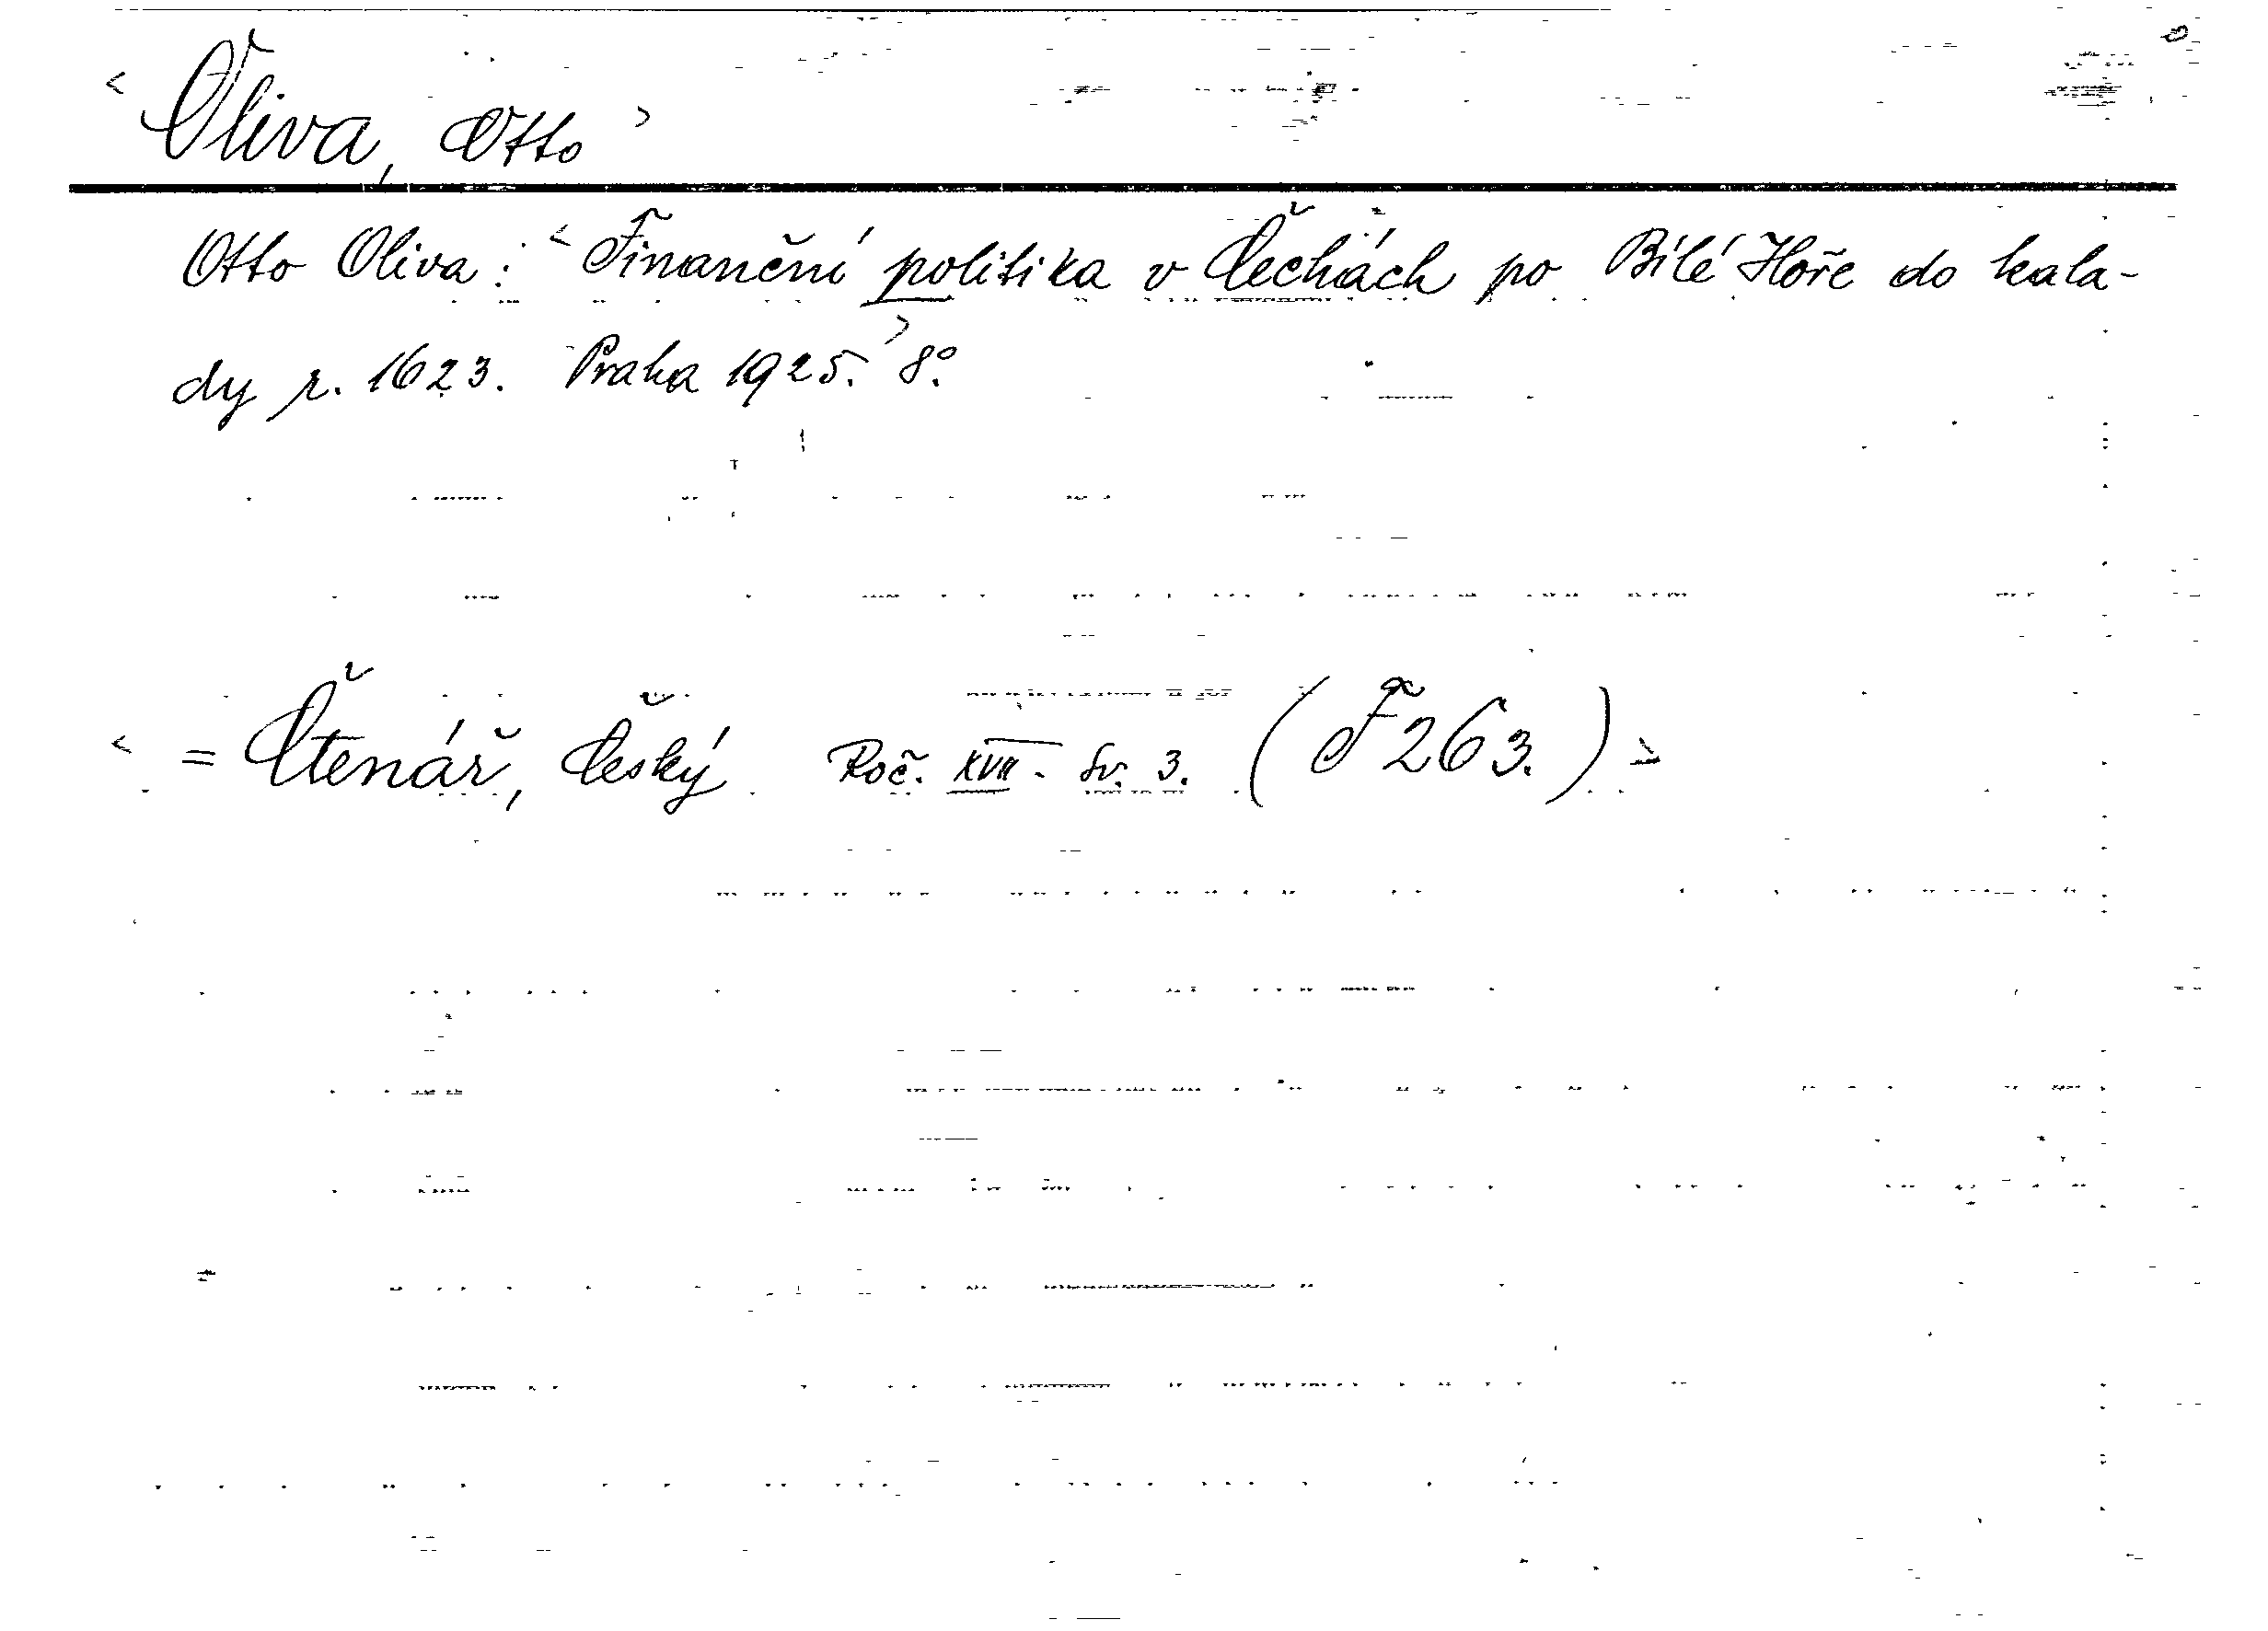 < Oliva, Otto >
Otto Oliva: < Finanční politika v Čechách po Bílé Hoře do kala-
dy r. 1623. Praha 1925. > 8°.
< = Čtenář, Český Roč. XVII. Sv. 3. (F 263.) >